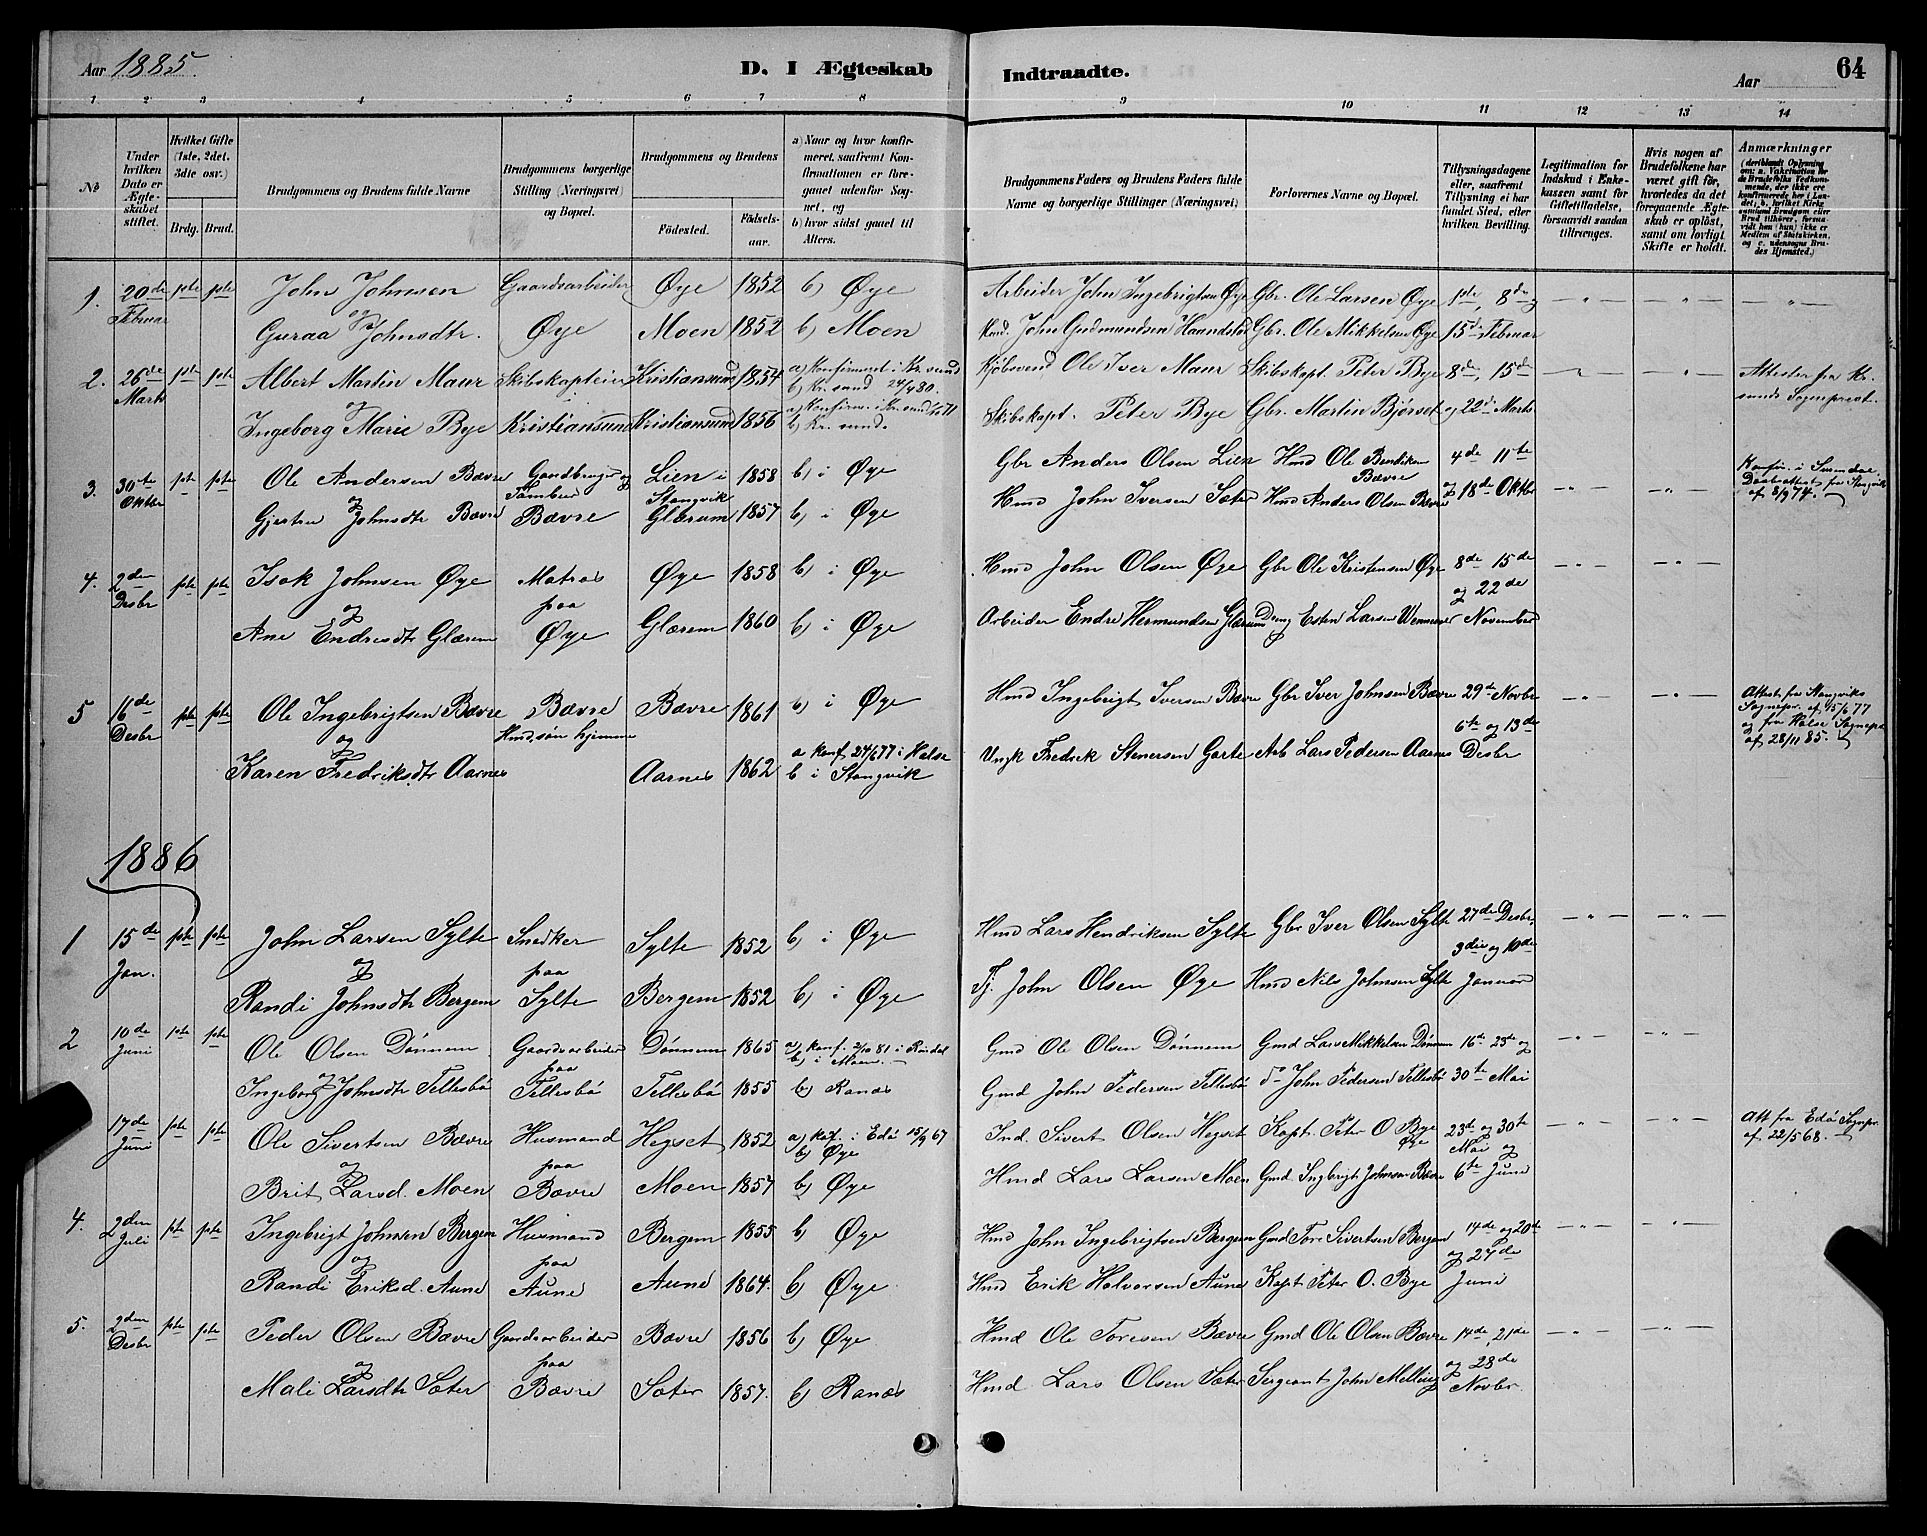 Aar 1885. D. I Ægteskab Indtraadte. Aar 64
1 2 3 4 5 6 7 8 9 10 11 12 13 14
No
Under hvilken Dato er Ægteskabet stiftet.
Hvilket Gifte (1ste, 2det, 3die osv.)
Brdg. Brud.
Brudgommens og Brudens fulde Navne
Brudgommens borgerlige Stilling (Næringsvei) og Bopæl.
Brudgommens og Brudens
Fødested. Fødselsaar.
a) Naar og hvor konfirmeret, saafremt Konfirmationen er foregaaet udenfor Sognet, og
b) hvor sidst gaaet til Alters.
Brudgommens Faders og Brudens Faders fulde Navne og borgerlige Stillinger (Næringsvei)
Forlovernes Navne og Bopæl.
Tillysningsdagene eller, saafremt Tillysning ei har fundet Sted, efter hvilken Bevilling.
Legitimation for Indskud i Enkekassen samt for Giftetilladelse, forsaavidt saadan tiltrænges.
Hvis nogen af Brudefolkene har været gift før, hvorledes da det foregaaende Ægteskab er opløst, samt om lovligt Skifte er holdt.
Anmærkninger
(deriblandt Oplysning om: a. Vakcination for de Brudefolks Vedkommende, der ikke ere konfirmerede her i Landet, b. hvilket Kirkesamfund Brudgom eller Brud tilhører, forsaavidt han (hun) ikke er Medlem af Statskirken, og c. udensogns Brudes Hjemsted.)
1. 20de Februar pte pte John Johnsen Gaardsarbeider Øye 1852 b) Øye Arbeider John Ingebrigtsen Øye Gbr. Ole Larsen Øye 1ste, 8de og — " — " — " —
og
Guraa Johnsdtr. Øye Moen 1852 b) Moen Hmd. John Gudmundsen Haandstad Gbr. Ole Mikkelsen Øye 15de Februar
2. 26de Marts pte pte Albert Martin Maur Skibskaptein Kristiansund 1854 a) Konfirmeret i Kr.sund b) Kr.sund 24/4 80. Kjøbmand Ole Iver Maur Skibskapt. Peter Bye 8de, 15de Attester fra Kr.sunds Sognepræst.
og i
Ingeborg Marie Bye Kristiansund Kristiansund 1856 a) Konfirm. i Kr.sund b) Kr.sund. Skibskapt. Peter Bye Gbr. Martin Bjørset og 22de Marts
3. 30te Oktbr pte pte Ole Andersen Bævre Gaardbruger og Tømberm Lien i Stangvik 1858 b) i Øye Gbr Anders Olsen Lien Hmd Ole Bendiksen Bævre 4de 11te Konfir. i Surendal. Daabsattest fra Stangvik af 8/9 74.
og
Gjertru Johnsdtr Bævre Bævre Glærum 1857 b) i Øye Hmd John Iversen Sæter Hmd Anders Olsen Bævre og 18de Oktbr
4. 2den Desbr pte pte Isak Johnsen Øye Matros Øye 1858 b) i Øye Hmd John Olsen Øye Gbr Ole Kristensen Øye 8de 15de
og paa og 22de
Ane Endresdtr Glærem Øye Glærem 1860 b) i Øye Arbeider Endre Hermundsen Glærum Dreng Esten Larsen November
5 16de Desbr pte pte Ole Ingebrigtsen Bævre Bævre Bævre 1861 b) i Øye Hmd Ingebrigt Iversen Bævre Gbr Iver Johnsen Bævre 29de Novbr Attest fra Stangviks Sognepr. af 15/6 77 og fra Halse Sognepr. af 28/11 85.
og Hmd.søn hjemme 6te og 13de
Karen Fredriksdtr Aarnes Aarnes 1862 a konf 24/6 77 i Halse b i Stangvik Ungk Fredrik Stenersen Garte Arb Lars Pedersen Aarnes Desbr
1886
1 15de Jan. pte pte John Larsen Sylte Snedker Sylte 1852 b) i Øye Hmd Lars Hendriksen Sylte Gbr Iver Olsen Sylte 27de Desbr,
og paa 3die og 10de
Randi Johnsdtr Bergem Sylte Bergem 1852 b) i Øye Tj. John Olsen Øye Hmd Nils Johnsen Sylte Januar
2 10de Juni pte pte Ole Olsen Dønnem Gaardsarbeider Dønnem 1865 a) konf. 2/10 81 i Rindal b) i Moen. Gmd Ole Olsen Dønnem Gmd Lars Mikkelsen Dønnem 16de 23de og
og paa
Ingeborg Johnsdtr Tellesbø Tellesbø Tellesbø 1855 b) Ranæs Gmd John Pedersen Tellesbø do John Pedersen Tellesbø 30te Mai
17de Juni pte pte Ole Sivertsen Bævre Husmand Hegset 1852 a) kof. i Edø 15/9 67 b) Øye Ind. Sivert Olsen Hegset Kapt. Peter O Bye Øye 23de og 30te Mai og Att fra Edø Sognepr. af 22/5 68.
og paa
Brit Larsd. Moen Bævre Moen 1857 b) Øye Hmd Lars Larsen Moen Gmd. Ingbrigt Johnsen Bævre 6te Juni
4. 2den Juli pte pte Ingebrigt Johnsen Bergem Husmand Bergem 1855 b) Øye Hmd John Ingebrigtsen Bergem Gmd Tore Sivertsen Bergem 14de og 20de
og paa og 27de
Randi Eriksd. Aune Aune Aune 1864. b) Øye Hmd Erik Halvorsen Aune Kapt Peter O. Bye Juni
5. 2den Desbr pte pte Peder Olsen Bævre Gaardsarbeider Bævre 1856 b) Øye Hmd Ole Toresen Bævre Gmd Ole Olsen Bævre 14de, 21de
og paa og 28de
Mali Larsdtr Sæter Bævre Sæter 1857. b) Ranæs Hmd Lars Olsen Sæter Sergeant John Melling Novbr.